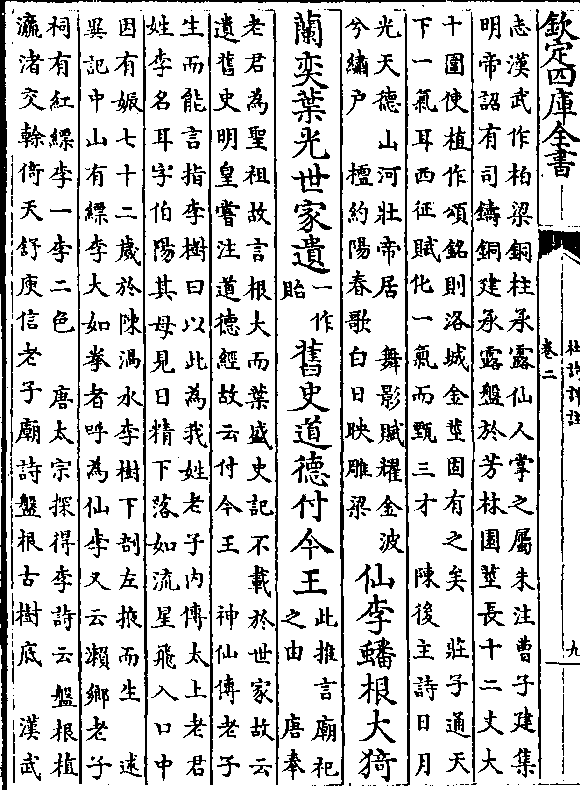 欽定四庫全書
杜詩詳註
卷二
九
志漢武作柏梁銅柱承露仙人掌之屬朱注曹子建集
明帝詔有司鑄銅建承露盤於芳林園莖長十二丈大
十圍使植作頌銘則洛城金莖固有之矣 莊子通天
下一氣耳西征賦化一氣而甄三才 陳後主詩日月
光天德山河壯帝居 舞影賦耀金波
兮繡户 檀約陽春歌白日映雕梁
仙李蟠根大猗
蘭奕葉光世家遺
一作
貽
舊史道德付今王
此推言廟祀
之由 唐奉
老君為聖祖故言根大而葉盛史記不載於世家故云
遺舊史明皇嘗注道德經故云付今王 神仙傳老子
生而能言指李樹曰以此為我姓老子内傳太上老君
姓李名耳字伯陽其母見日精下落如流星飛入口中
因有娠七十二歲於陳渦水李樹下剖左掖而生 述
異記中山有縹李大如拳者呼為仙李又云瀨鄉老子
祠有紅縹李一李二色 唐太宗探得李詩云盤根植
瀛渚交榦倚天舒庾信老子廟詩盤根古樹底 漢武